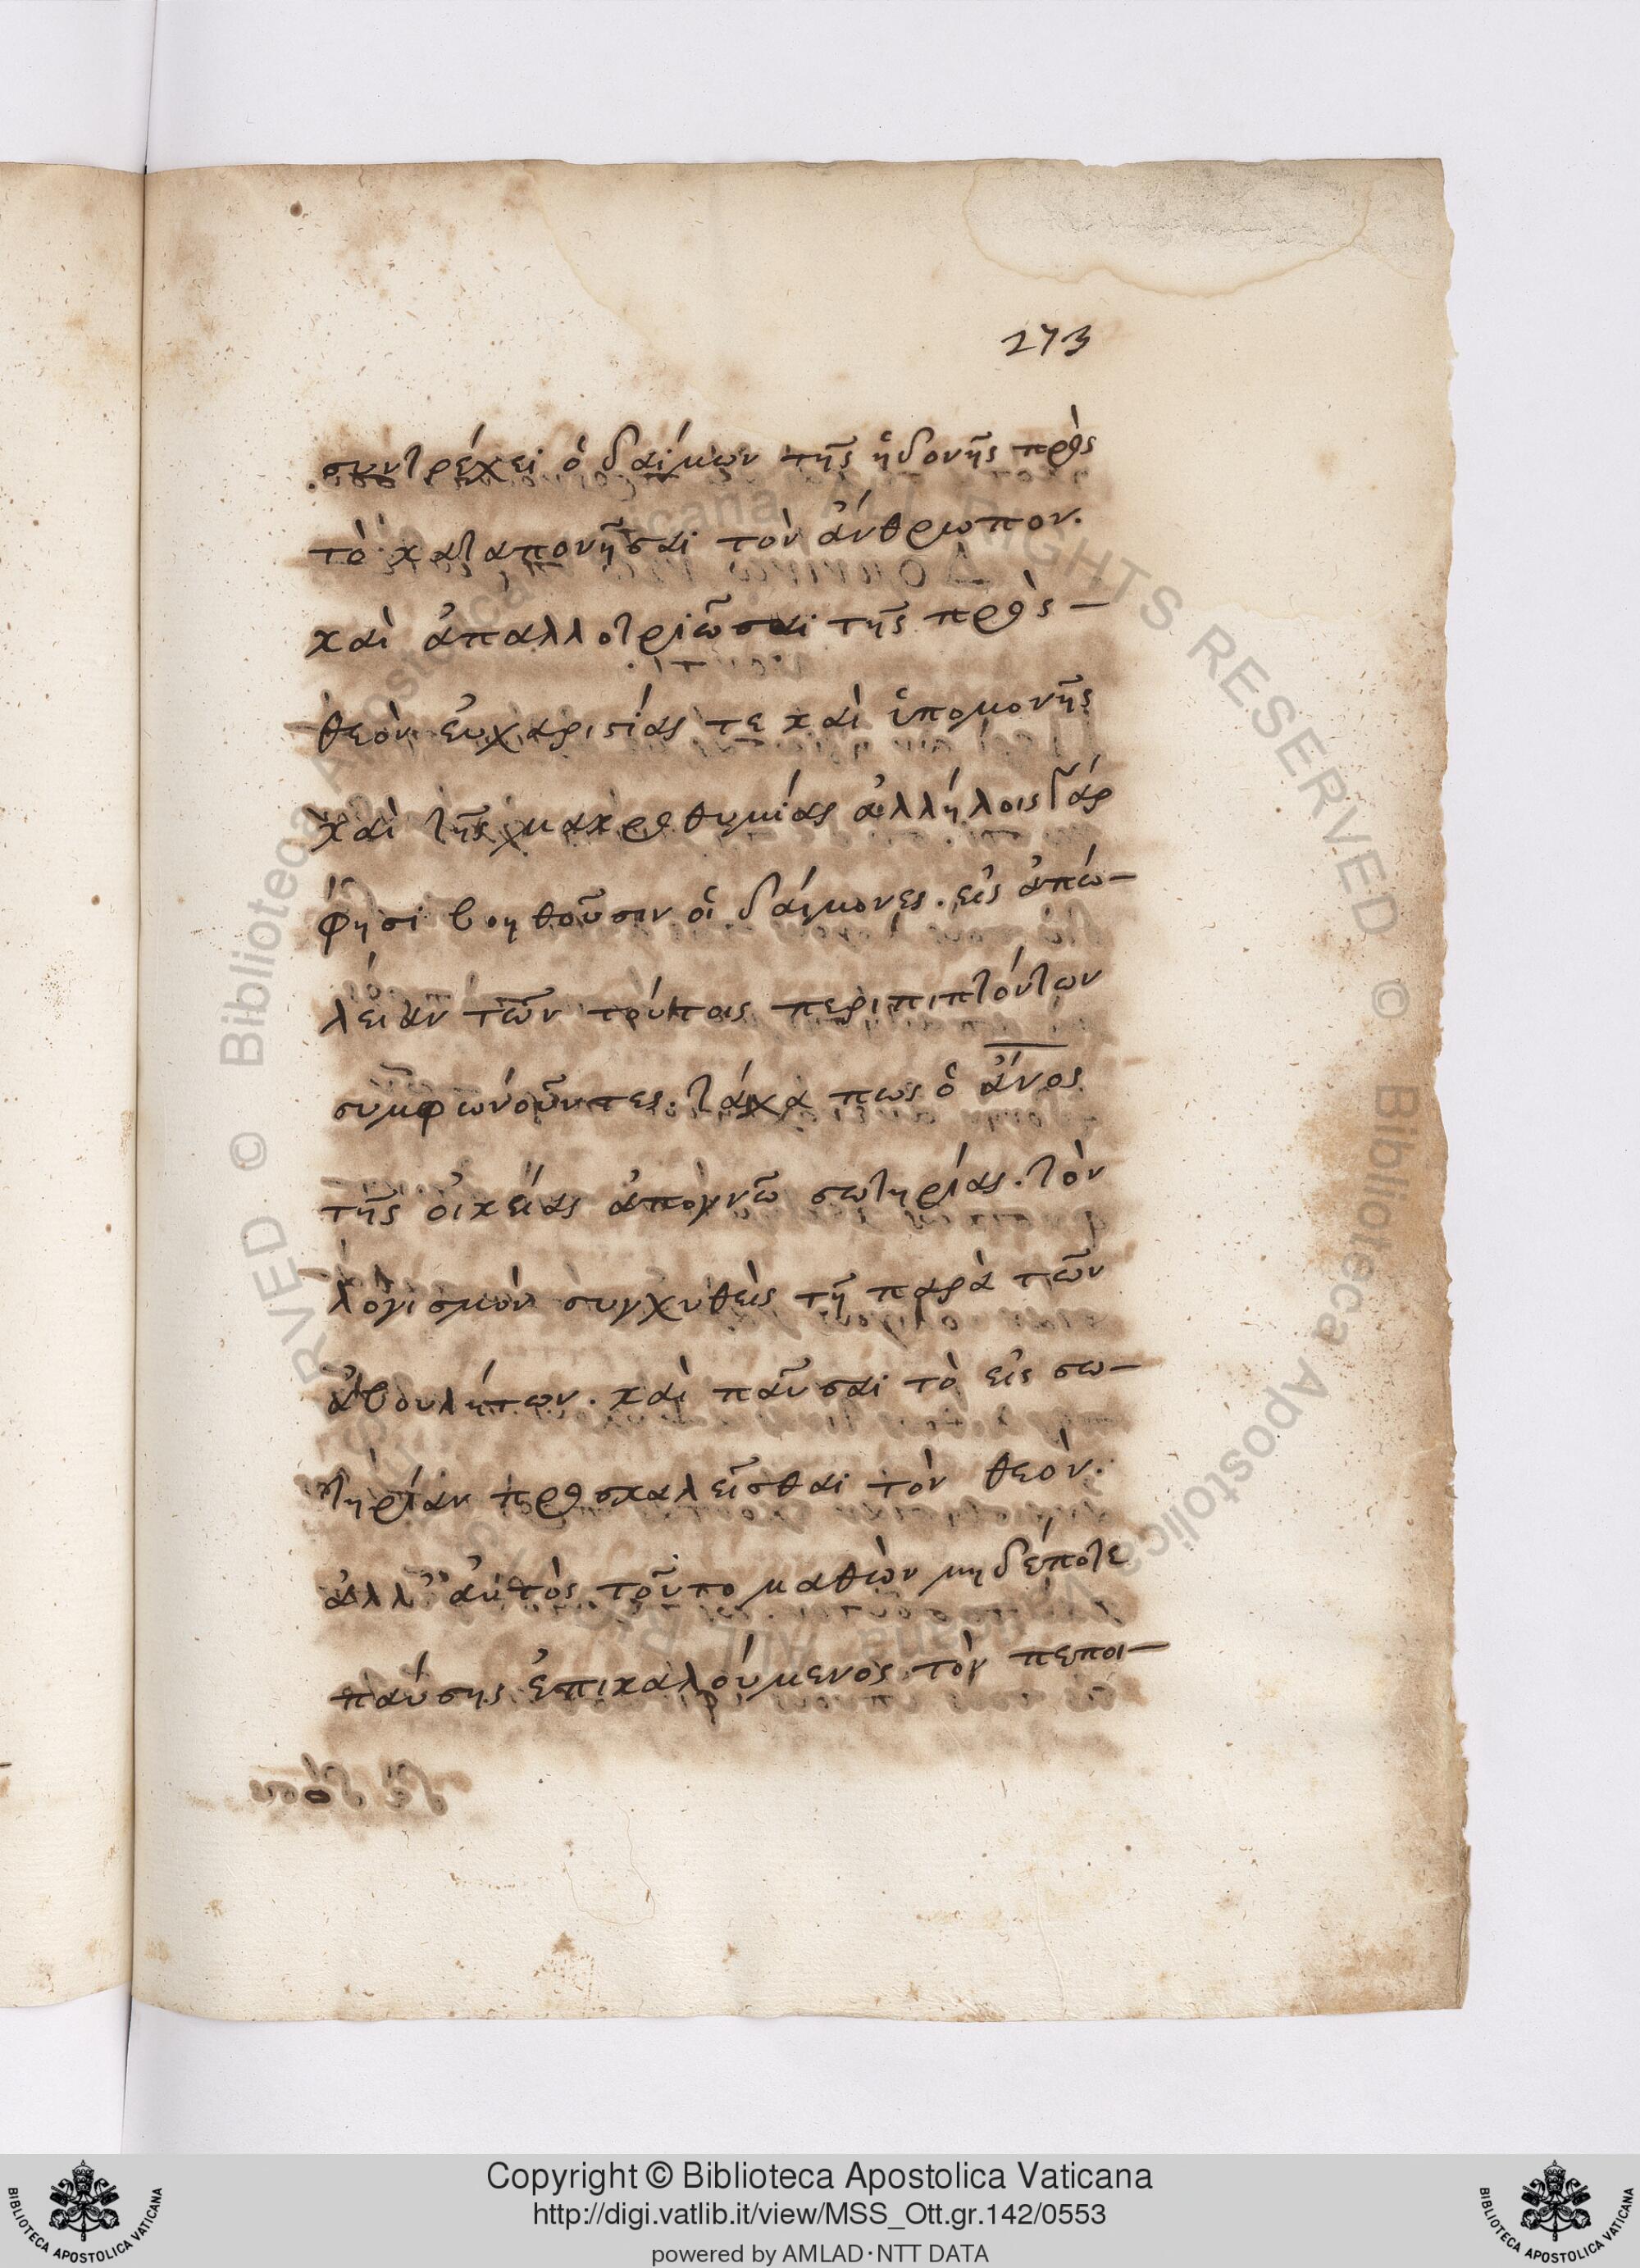 273
συντρέχει ὁ δαίμων τῆς ἡδονῆς πρὸς
τὸ καταπονῆσαι τὸν ἄνθρωπον.
καὶ ἀπαλλοτριῶσαι τῆς πρὸς –
θεὸν εὐχαριστίας τε καὶ ὑπομονῆς
καὶ τῆς μακροθυμίας ἀλλήλοις γάρ
φησι βοηθοῦσιν οἱ δαίμονες. εἰς ἀπώ–
λειαν τῶν τούτοις περιπιπτόντων
συμφωνοῦντες. τάχα πως ὁ ἄνος
τῆς οἰκείας ἀπογνῶ σωτηρίας. τὸν
λογισμὸν συγχυθεὶς τῇ παρὰ τῶν
ἀβουλήτων. καὶ παῦσαι τὸ εἰς σω–
τηρίαν προσκαλεῖσθαι τὸν θεόν.
ἀλλ' αὐτὸς τοῦτο μαθὼν μηδέποτε
παύσῃς ἐπικαλούμενος τὸν πεποι–
© Biblioteca Apostolica Vaticana ALL RIGHTS RESERVED
© Biblioteca Apostolica Vaticana ALL RIGHTS RESERVED
Copyright © Biblioteca Apostolica Vaticana
http://digi.vatlib.it/view/MSS_Ott.gr.142/0553
powered by AMLAD·NTT DATA
BIBLIOTECA APOSTOLICA VATICANA
BIBLIOTECA APOSTOLICA VATICANA